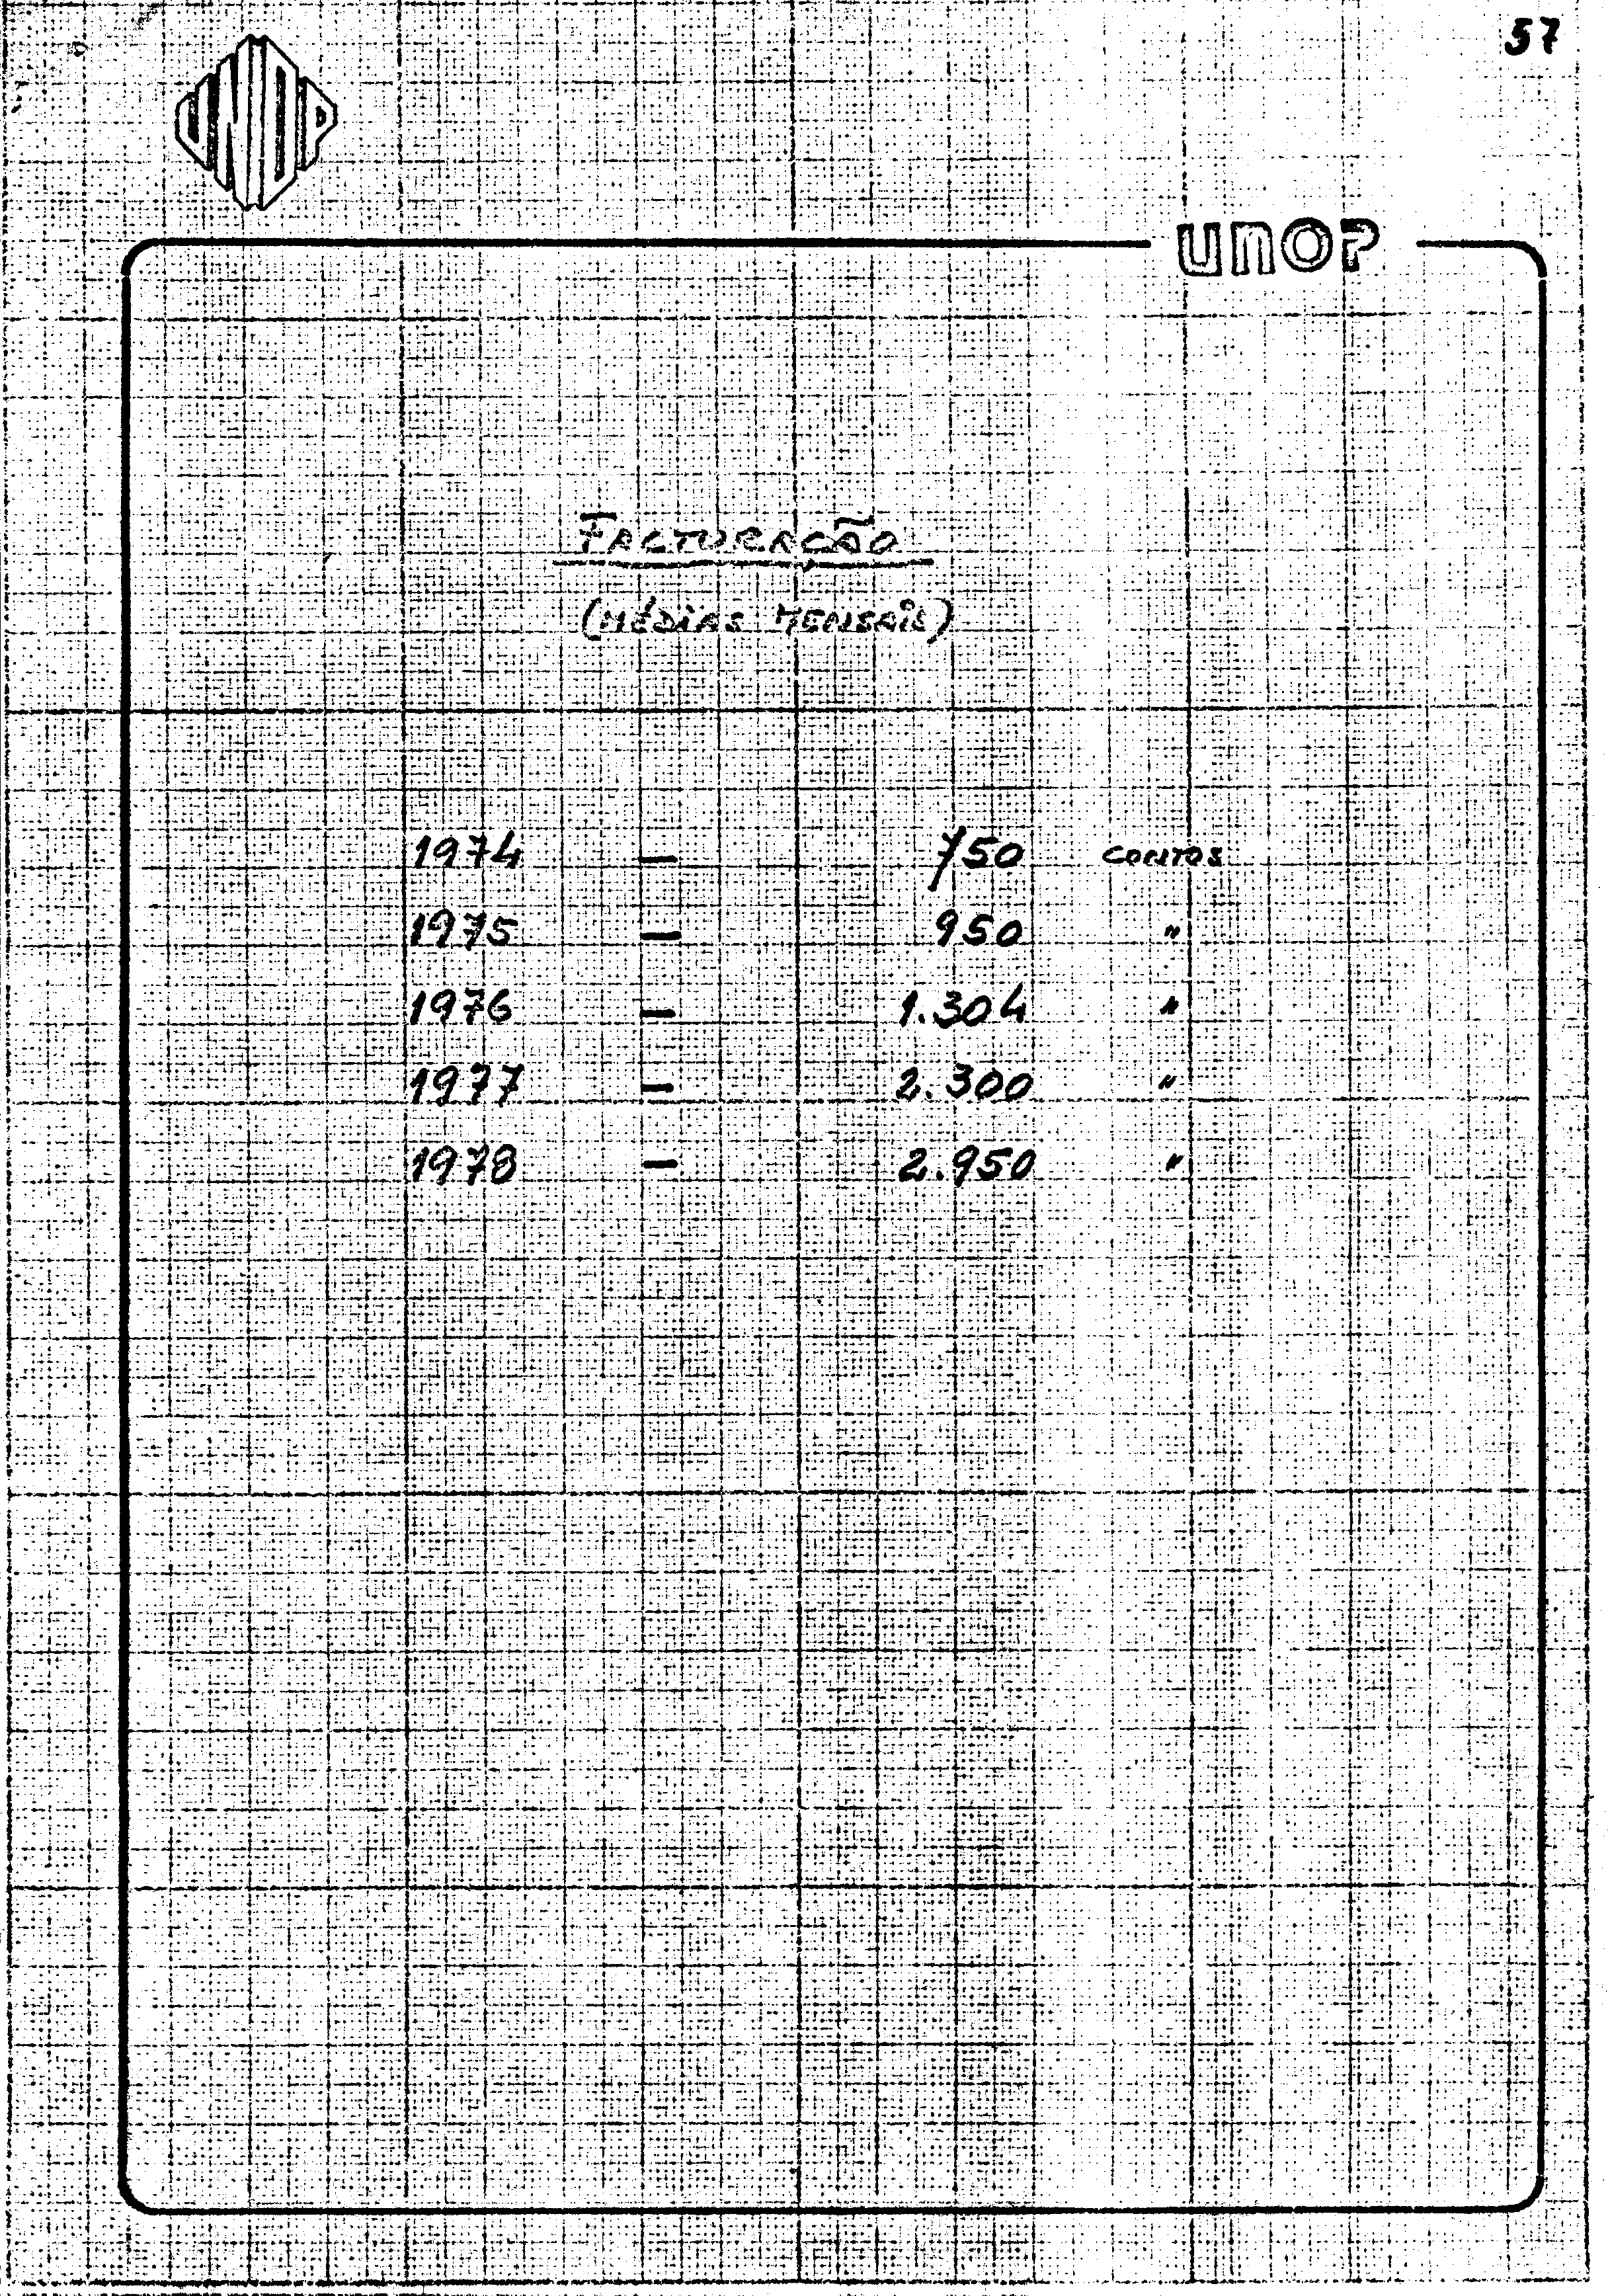 57
UNOP
FACTURAÇÃO
(MÉDIAS MENSAIS)
1974 — 750 CONTOS
1975 — 950 "
1976 — 1.304 "
1977 — 2.300 "
1978 — 2.950 "